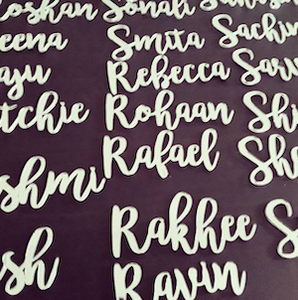 oskan Sonali
eena Smita Sachi
ayu Rebecca Sar
tchie Rohaan Shi
Rafael Sh
shmi
Rakhee S
sh
Ravin